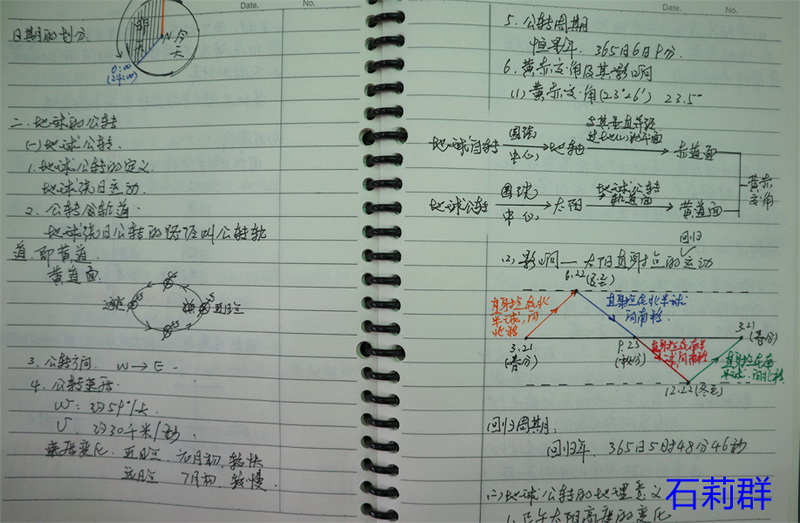 Date.
No.
日期的划分.
N
今天
0:00
(24:00)
二. 地球的公转
(一) 地球公转.
1. 地球公转的定义
地球绕日运动.
2. 公转含轨道:
地球绕日公转的路径叫公转轨
道. 即黄道.
黄道面.
近日点
3. 公转方向. W→E.
4. 公转速度.
W: 约59′/天
V: 约30千米/秒.
速度变化. 近日点 元月初, 较快
远日点 7月初, 较慢.
Date.
No.
5. 公转周期
恒星年. 365日6时9分.
6. 黄赤交角及其影响
(1) 黄赤交角(23°26′) 23.5°
地球自转 围绕 中心 地轴 赤道面
地球公转 围绕 中心 太阳 地球公转 轨道面 黄道面
黄赤
交角
回归
(2) 影响 — 太阳直射点的运动
6.22(夏至)
直射点在北
半球, 向
北移
直射点在北半球
向南移.
3.21
(春分)
9.23
(秋分)
直射点在南半
球, 向南移
3.21
(春分)
直射点在南
半球. 向北移
12.22(冬至)
回归周期:
回归年. 365日5时48分46秒
(二) 地球公转的地理意义
1. 正午太阳高度的变化
石莉群